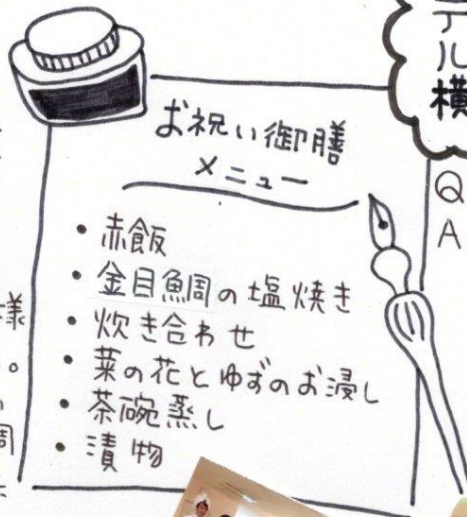 お祝い御膳
メニュー
・赤飯
・金目鯛の塩焼き
・炊き合わせ
・菜の花とゆずのお浸し
・茶碗蒸し
・漬物
テル
横
Q
A
様
。
周